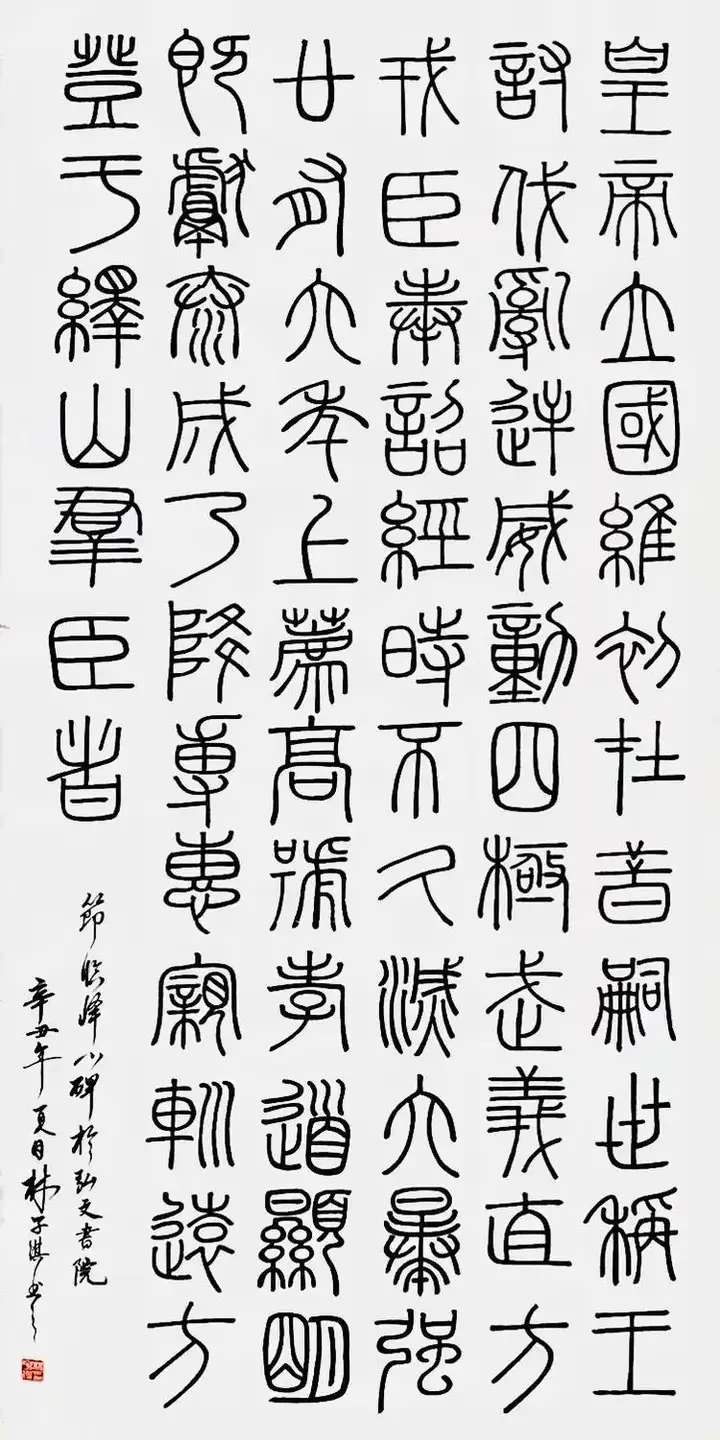 皇帝立國維初在昔嗣世稱王
討伐亂逆威動四極武義直方
戎臣奉詔經時不久滅六暴強
廿有六年上薦高號孝道顯明
既獻泰成乃降專惠寴䡅遠方
登于繹山羣臣者
節臨峄山碑於弘文書院
辛丑年夏日林子淇书之